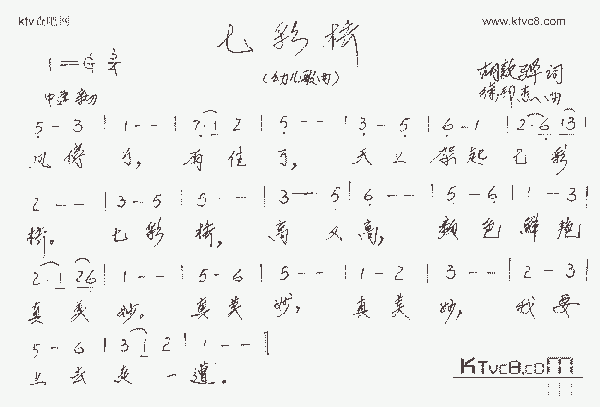 ktv吃吧网
www.ktvc8.com
七彩桥
(幼儿歌曲)
1=G 3/4
胡敦骅 词
徐邦杰 曲
中速
5 - 3 | 1 - - | 7·1 2 | 5 - - | 3 - 5 | 6 - 1 | 2·6 13 |
风停了, 雨住了, 天上架起七彩
2 - - | 3 - 5 | 5 - - | 3 - 5 | 6 - - | 5 - 6 | 1 - 3 |
桥。 七彩桥, 高又高, 颜色鲜艳
2·1 26 | 1 - - | 5 - 6 | 5 - - | 1 - 2 | 3 - - | 2 - 3 |
真美妙。 真美妙, 真美妙, 我要
5 - 6 | 3 1 2 | 1 - - ‖
上去走一遭。
KTvc8.com